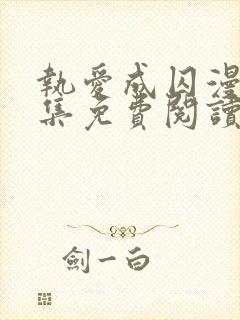 執愛成囚漫
集免費閱讀
劍一白